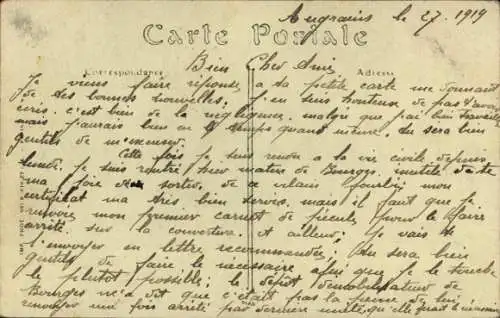 Augrains le 27. 1919
Carte Postale
Bien Cher Ami
Correspondance Adresse
Je viens faire réponse a ta petite carte me donnant
de tes bonnes nouvelles; j'en suis honteux de pas t'avoir
écris. c'est bien de la négligence. malgré que j'ai bien travaillé
mais j'aurais bien eu le temps quand même. tu sera bien
gentils de m'excuser.
Cette fois je suis rendu a la vie civile depuis
lundi. Je suis rentré hier matin de Bourges. inutile de te
ma joie de sortir de ce vilain fourbi, mon
certificat ma très bien servis. mais il faut que je
renvoie mon premier carnet de pécule pour le faire
arrêté. sur la couverture et ailleur; Je vais de
l'envoyer en lettre recommandée, tu sera bien
gentils de faire le nécessaire afin que je le touche
le plutôt possible; le dépôt démobilisateur de
Bourges m'a dit que c'était pas la peine de lui
renvoyer une fois arrêté par dernière unité, qu'elle